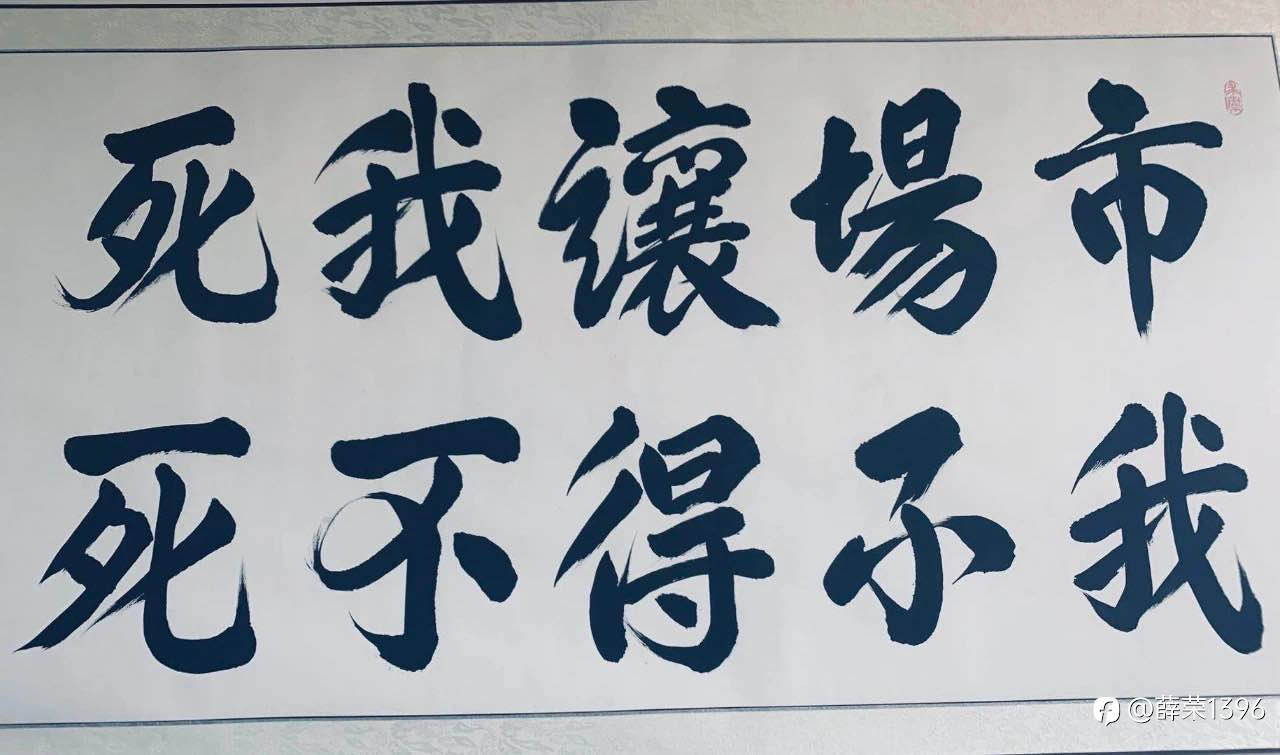 市場讓我死
我不得不死
@薛荣1396